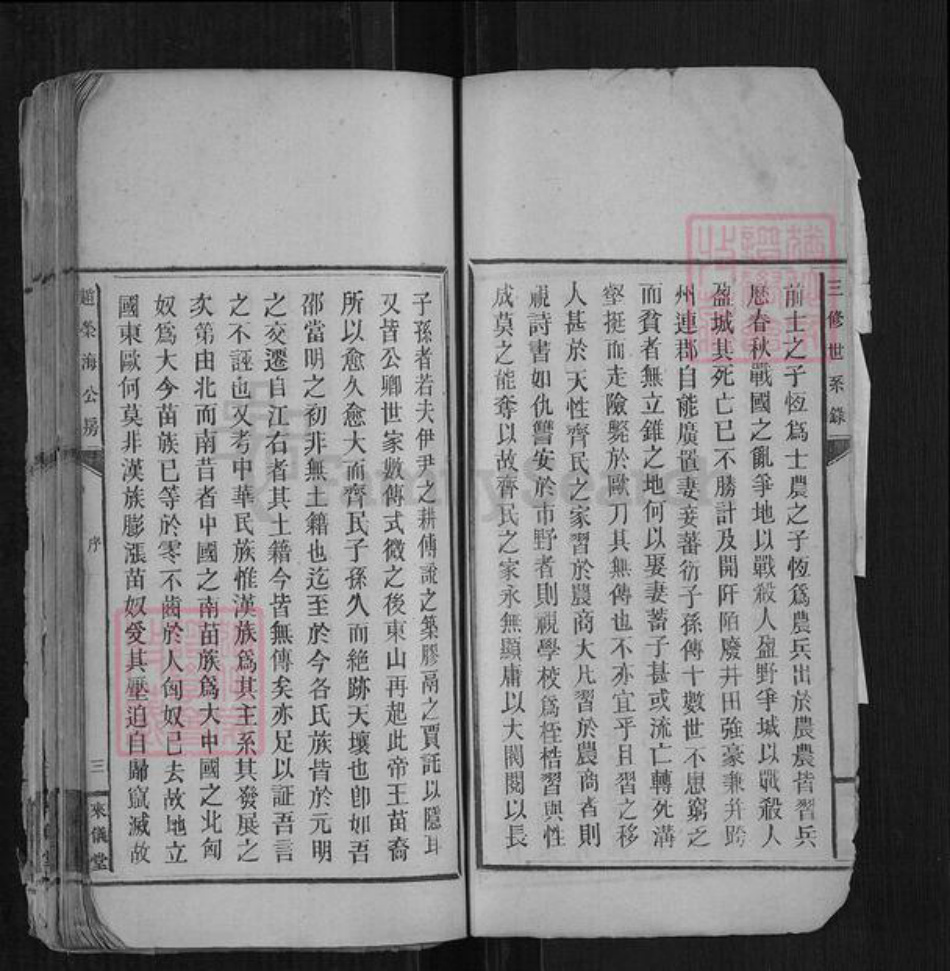 三修世系錄
前士之子恆爲士農之子恆爲農兵出於農農皆習兵
歷春秋戰國之亂爭地以戰殺人盈野爭城以戰殺人
盈城其死亡已不勝計及開阡陌廢井田強豪兼并跨
州連郡自能廣置妻妾蕃衍子孫傳十數世不患窮之
而貧者無立錐之地何以娶妻蓄子甚或流亡轉死溝
壑挺而走險斃於歐刀其無傳也不亦宜乎且習之移
人甚於天性齊民之家習於農商大凡習於農商者則
視詩書如仇讐安於市野者則視學校爲桎梏習與性
成莫之能奪以故齊民之家永無顯庸以大閥閱以長
子孫者若夫伊尹之耕傅說之築膠鬲之賈託以隱耳
又皆公卿世家數傳式微之後東山再起此帝王苗裔
所以愈久愈大而齊民子孫久而絶跡天壤也卽如吾
邵當明之初非無土籍也迄至於今各氏族皆於元明
之交遷自江右者其土籍今皆無傳矣亦足以証吾言
之不誣也又考中華民族惟漢族爲其主系其發展之
次第由北而南昔者中國之南苗族爲大中國之北匈
奴爲大今苗族已等於零不齒於人匈奴已去故地立
國東歐何莫非漢族膨漲苗奴受其壓迫自歸竄滅故
趙榮海公房
序
三
來儀堂